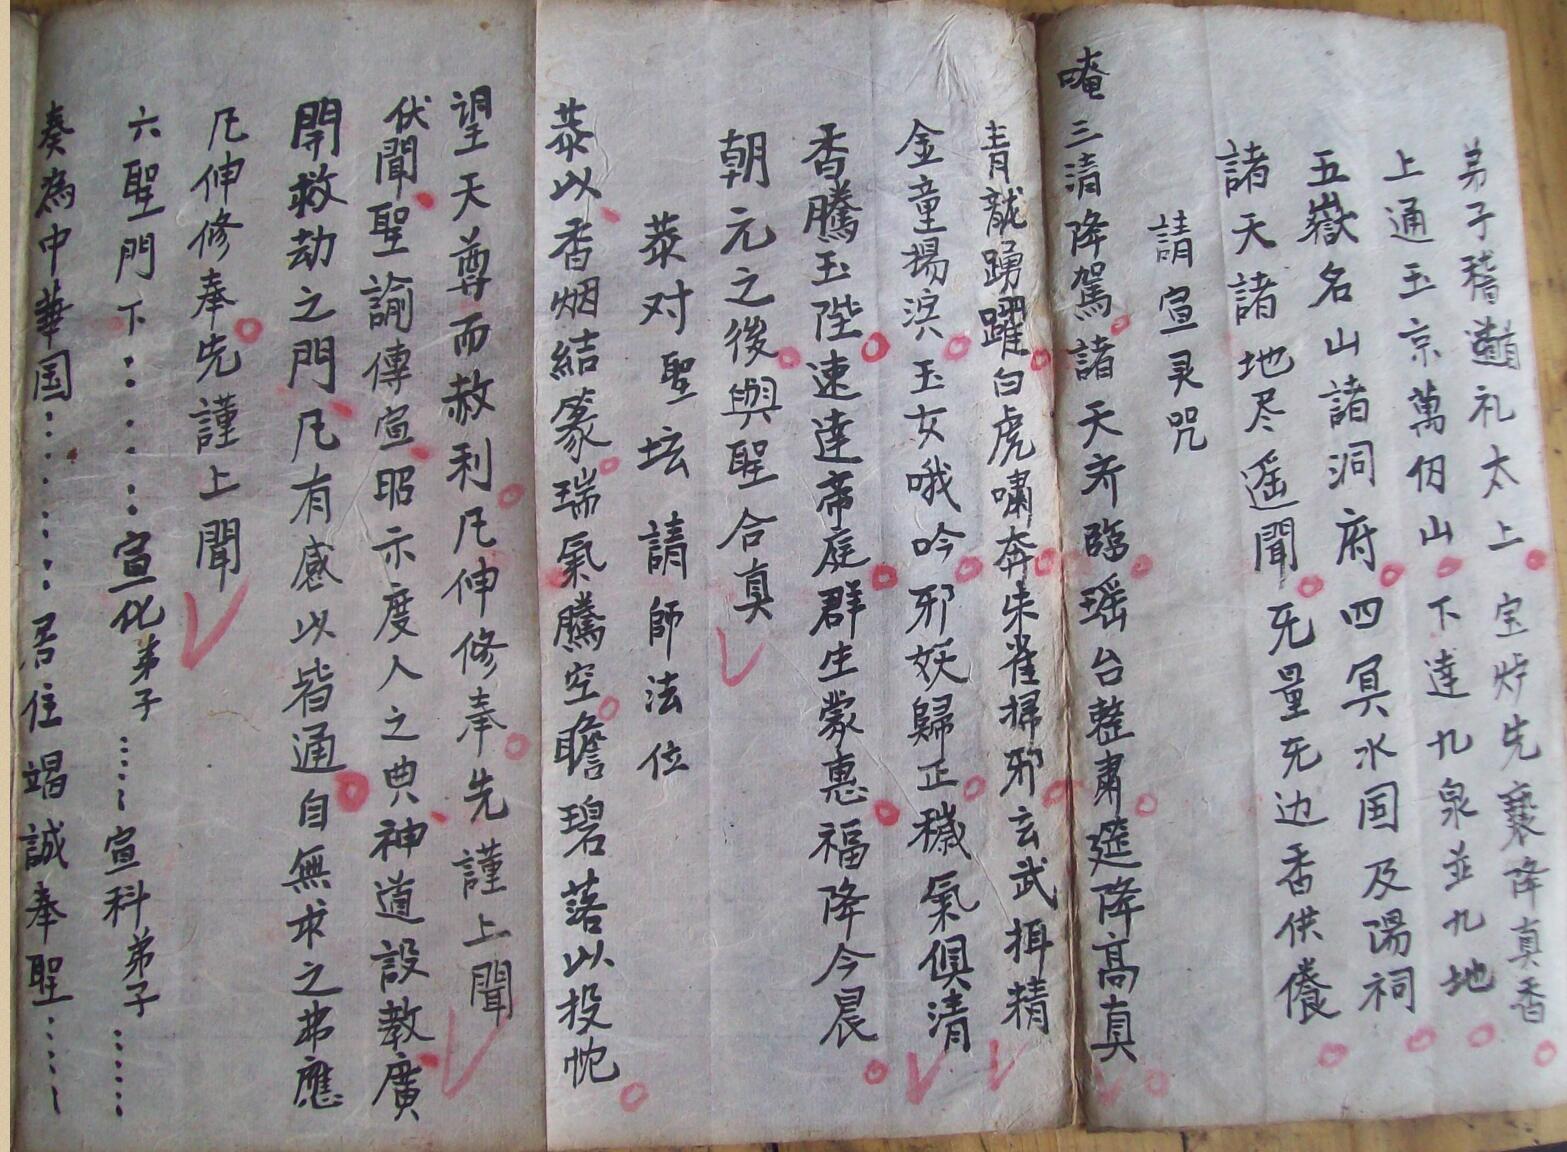 弟子稽道礼太上宝炉先褰降真香
上通玉京萬仞山下達九泉並九地
五嶽名山諸洞府四冥水国及陽祠
諸天諸地尽遥聞无量无边香供養
請宣灵咒
唵三清降駕諸天齐臨瑶台整肅筵降高真
青龍踴躍白虎嘯奔朱雀掃邪玄武揖精
金童揚湨玉女哦吟邪妖歸正穢氣俱清
香騰玉陛速達帝庭群生蒙惠福降今晨
朝元之後與聖合真
恭对聖坛請師法位
恭以香烟結篆瑞氣騰空瞻碧落以投忱
望天尊而赦利凡伸修奉先謹上聞
伏聞聖諭傳宣昭示度人之典神道設教廣
開救劫之門凡有感以皆通自無求之弗應
凡伸修奉先謹上聞
六聖門下：：：：宣化弟子……宣科弟子……
奏為中華国：：：：居住竭誠奉聖……